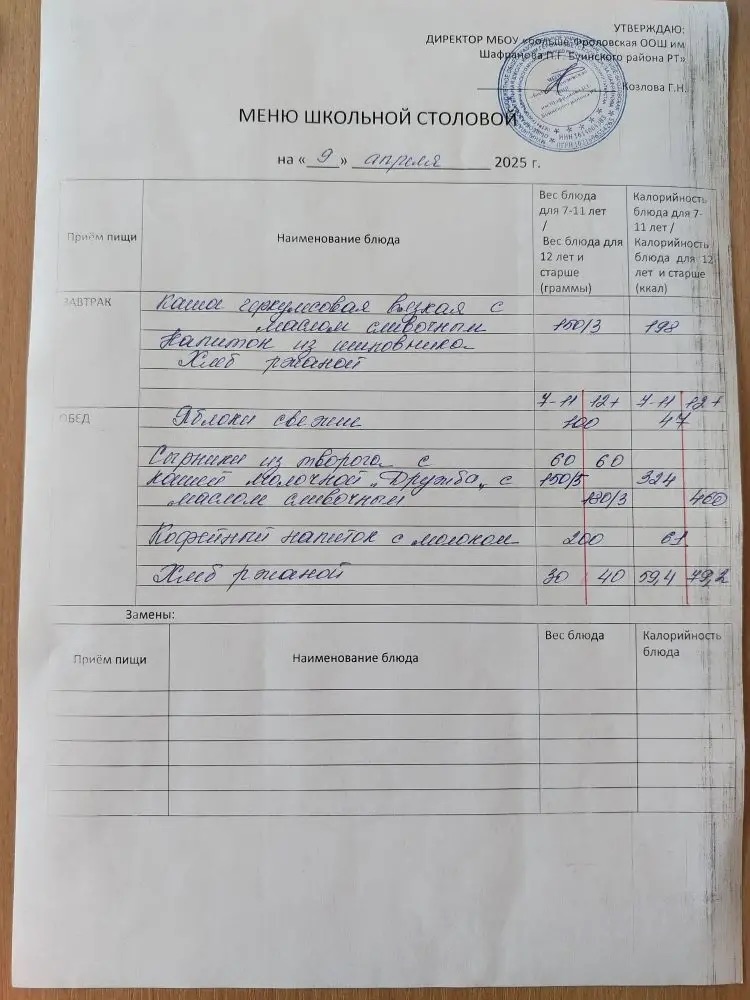 УТВЕРЖДАЮ:
ДИРЕКТОР МБОУ «больше-Фроловская ООШ им
Шафранова П.Г. Буинского района РТ»
Козлова Г.Н.
МЕНЮ ШКОЛЬНОЙ СТОЛОВОЙ
на « 9 » апреля 2025 г.
Приём пищи Наименование блюда Вес блюда для 7-11 лет / Вес блюда для 12 лет и старше (граммы) Калорийность блюда для 7-11 лет / Калорийность блюда для 12 лет и старше (ккал)
ЗАВТРАК Каша геркулесовая вязкая с
маслом сливочным 150/3 198
Напиток из шиповника
Хлеб ржаной
7-11 12+ 7-11 12+
ОБЕД Яблоки свежие 100 47
Сырники из творога с 60 60
кашей молочной „Дружба„ с 150/5 324
маслом сливочным 180/3 460
Кофейный напиток с молоком 200 61
Хлеб ржаной 30 40 59,4 79,2
Замены:
Приём пищи Наименование блюда Вес блюда Калорийность блюда